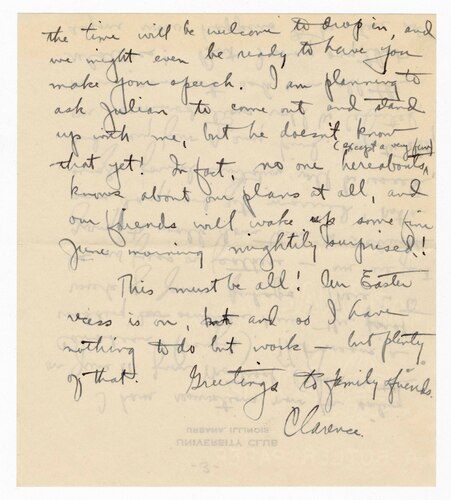 the time will be welcome to drop in, and
we might even be ready to have you
make your speech. I am planning to
ask Julian to come out and stand
up with me, but he doesn't know
(except a very few)
that yet! In fact, no one hereabouts
knows about our plans at all, and
our friends will wake up some fine
June morning mightily surprised!
This must be all! Our Easter
recess is on, but and so I have
nothing to do but work — but plenty
of that. Greetings to family & friends.
Clarence.
UNIVERSITY CLUB
URBANA, ILLINOIS
-3-